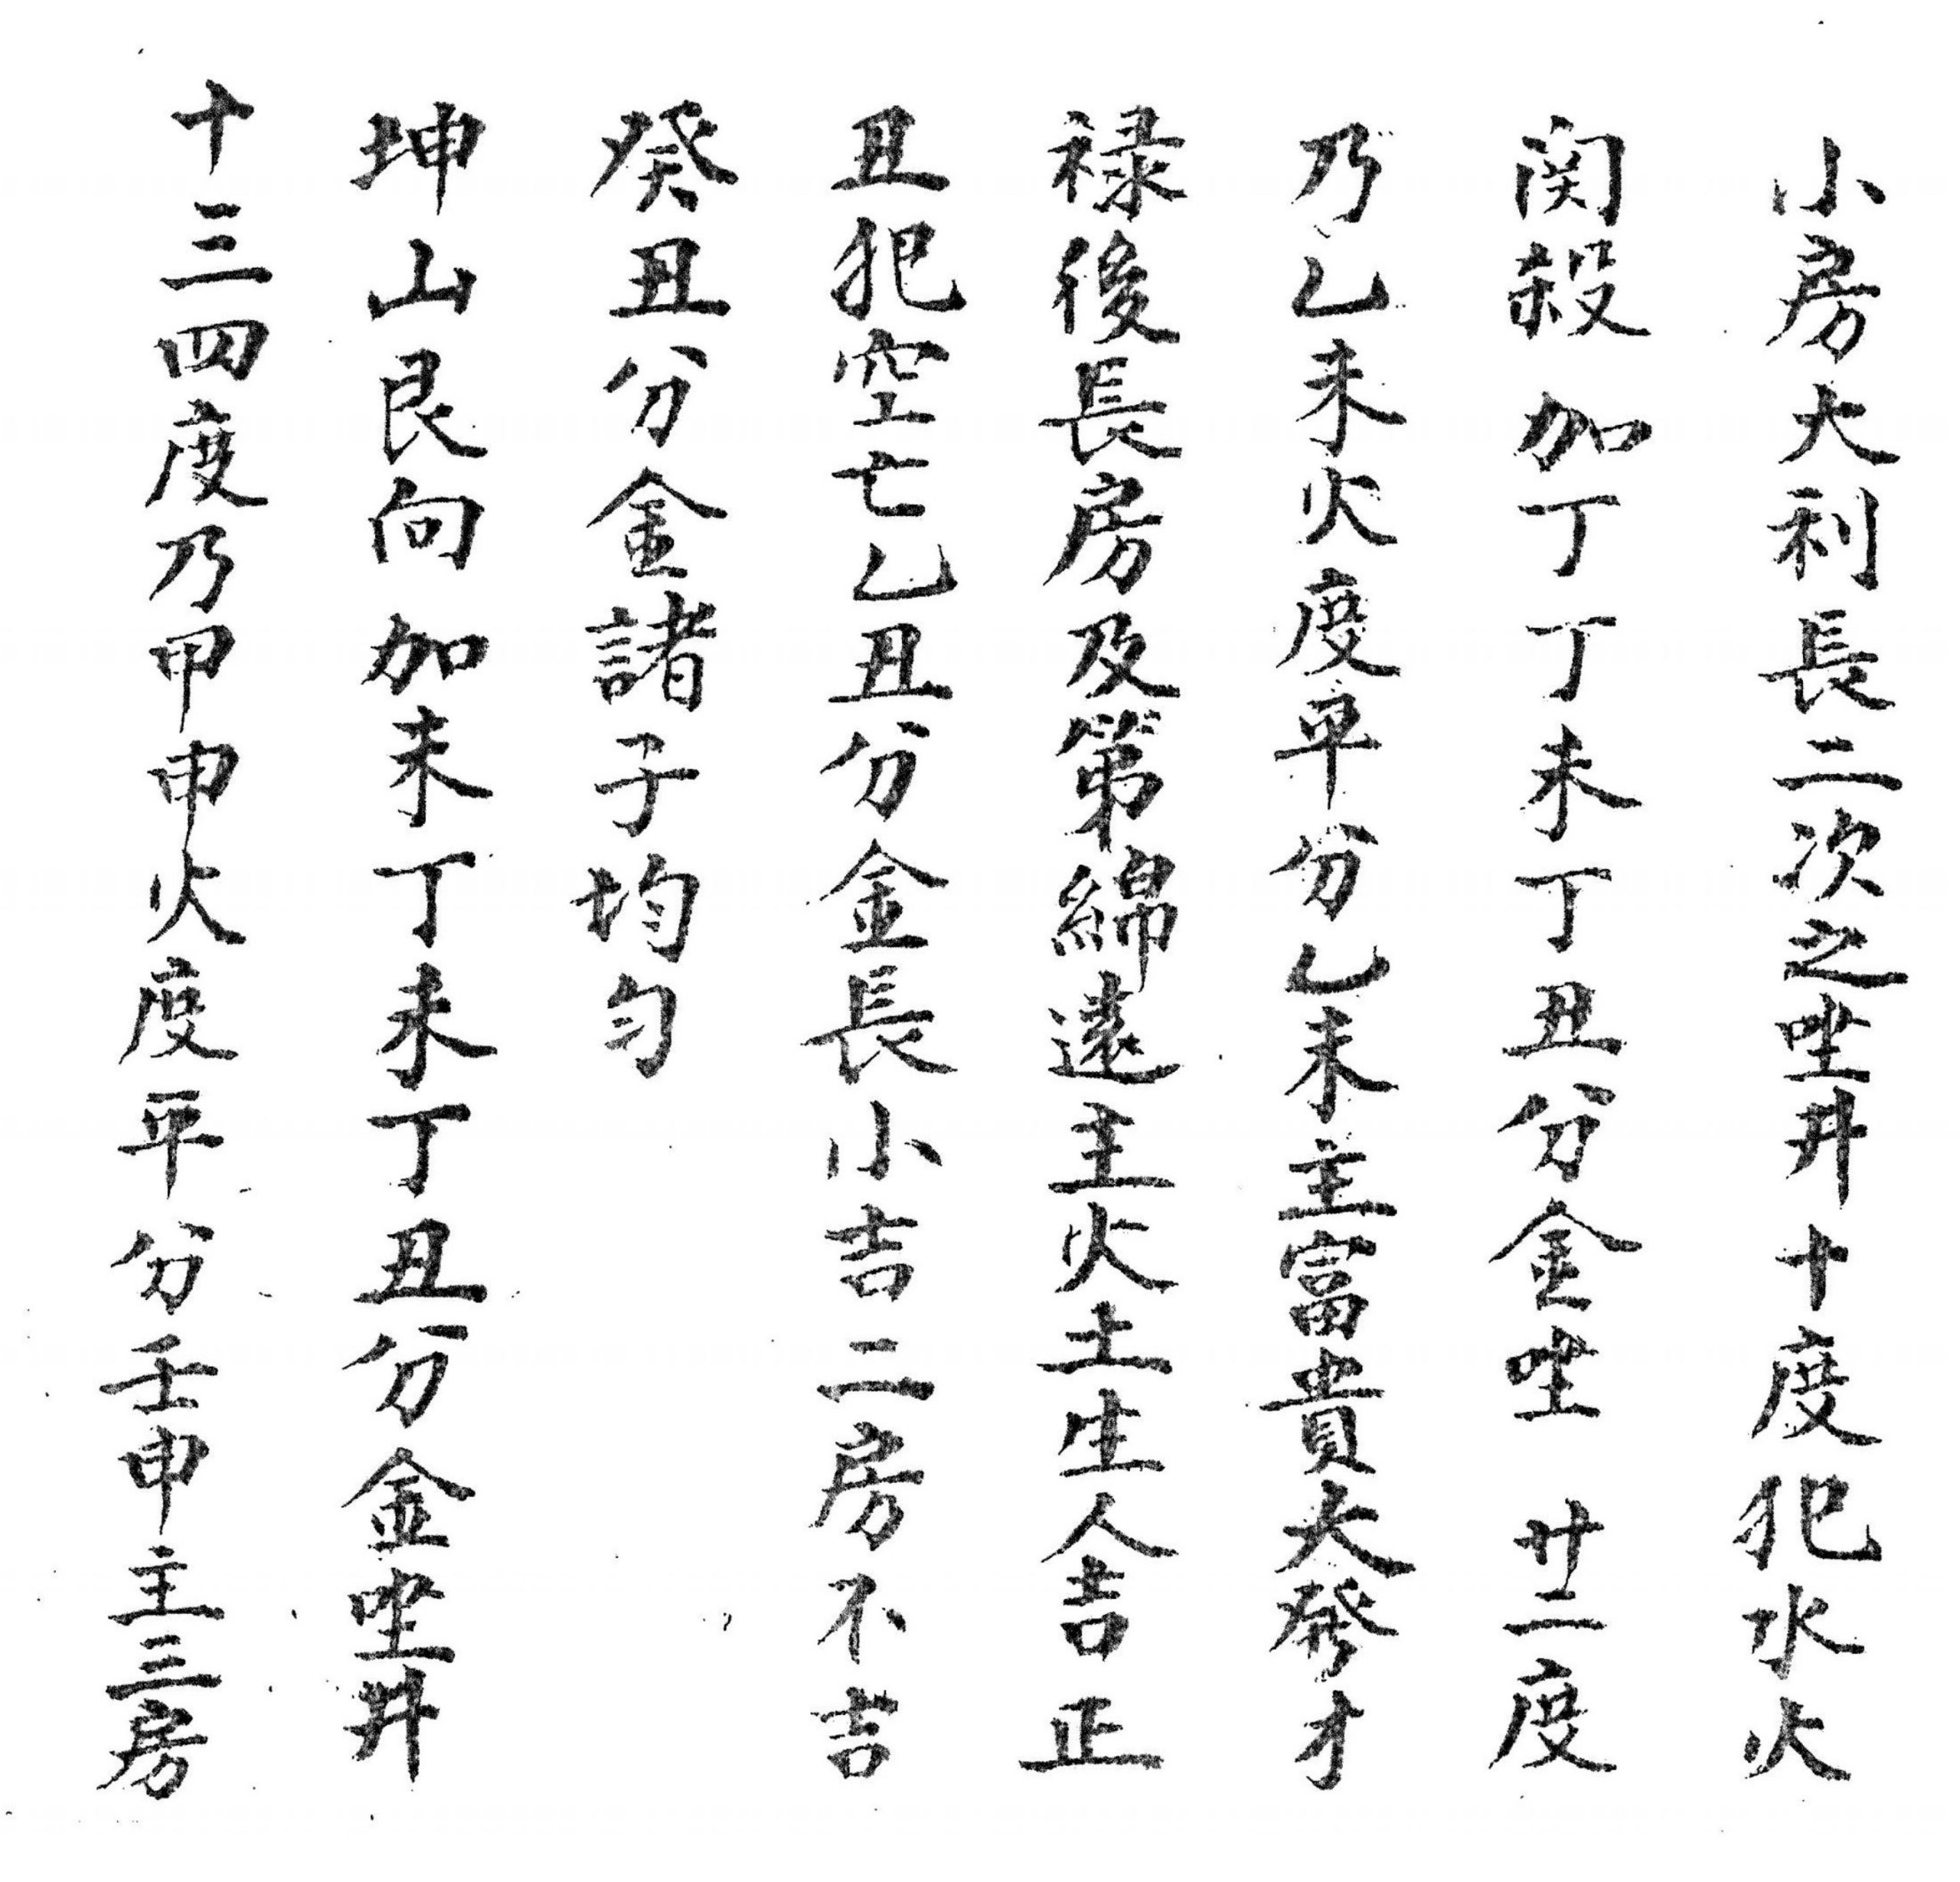 小房大利長二次之㘴井十度犯水火
関殺加丁丁未丁丑分金㘴廿二度
乃乙未火度平分乙未主富貴大發才
禄後長房及第綿遠主火土生人吉正
丑犯空亡乙丑分金長小吉二房不吉
癸丑分金諸子均匀
坤山艮向加未丁未丁丑分金㘴井
十三四度乃甲申火度平分壬申主三房